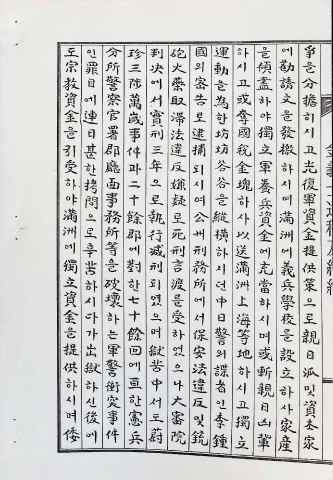 爭을分擔하시고光復軍資金提供策으로親日派및資本家
에勸誘文을發撤하시며滿洲에義兵學校을設立하사家産
을傾盡하야獨立軍養兵資金에充當하시며或斬親日凶輩
하시고或奪國稅金塊하사以送滿洲上海等地하시고獨立
運動을為한坊坊谷谷을縱橫하시던中日警의諜者인李鍾
國의審告로逮捕되시여公州刑務所에서保安法違反및銃
砲火藥取滯法違反嫌疑로死刑言渡를受하였으나大審院
判決에서實刑三年으로執行減刑되였으며獄苦中서도蔚
珍三陟萬歲事件과二十餘郡에對한七十餘回에亘한憲兵
分所警察官署郡廳面事務所等을破壞하는軍警衝突事件
인罪目에連日甚한拷問으로辛苦하시다가出獄하신後에
도宗教資金을引受하야滿洲에獨立資金을提供하시며倭